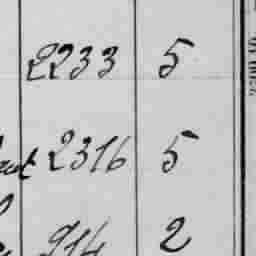 2233 5
2316 5
914 2